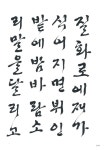 질화로에 재가
식어지면 뷔인
밭에 밤바람 소
리 말을 달리고